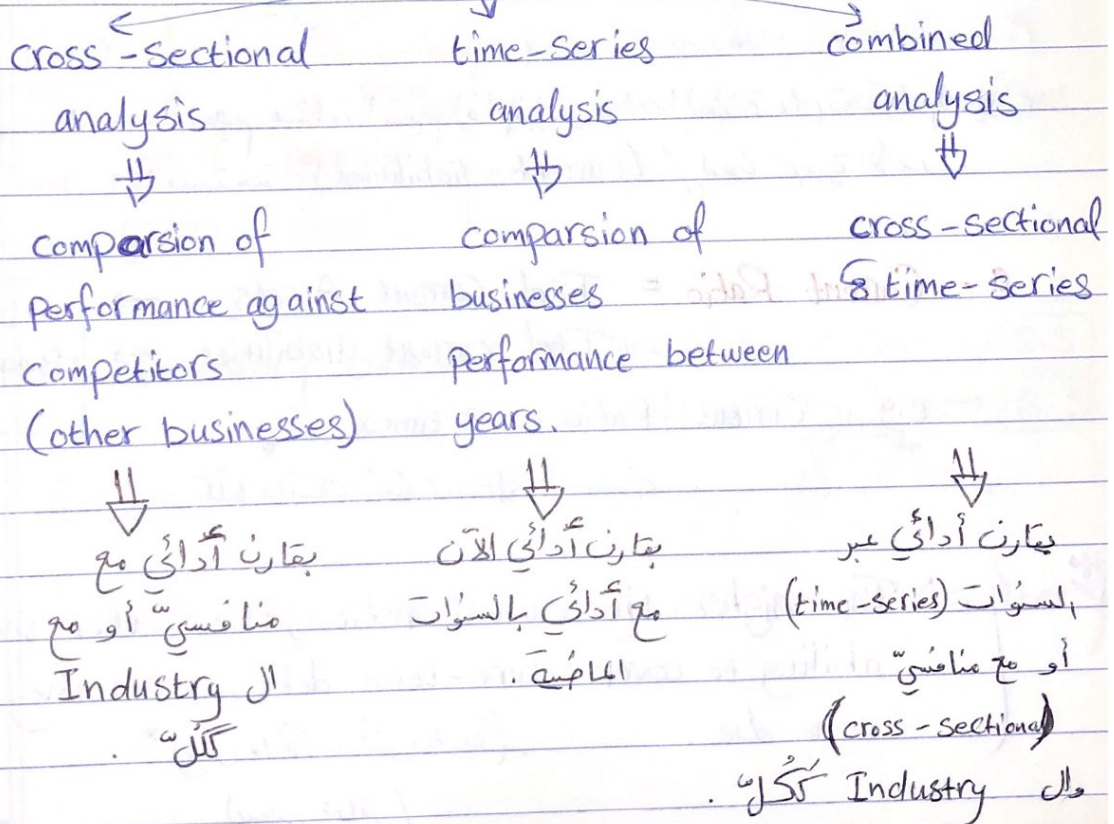 cross-sectional
analysis
comparsion of
performance against
competitors
(other businesses)
بقارن أدائي مع
منافسيّ أو مع
ال Industry
ككلّ .
time-series
analysis
comparsion of
businesses
performance between
years.
بقارن أدائي الآن
مع أدائي بالسنوات
الماضية .
combined
analysis
cross-sectional
& time-series
بقارن أدائي عبر
السنوات (time-series)
أو مع منافسيّ
(cross-sectional)
وال Industry ككُلّ .